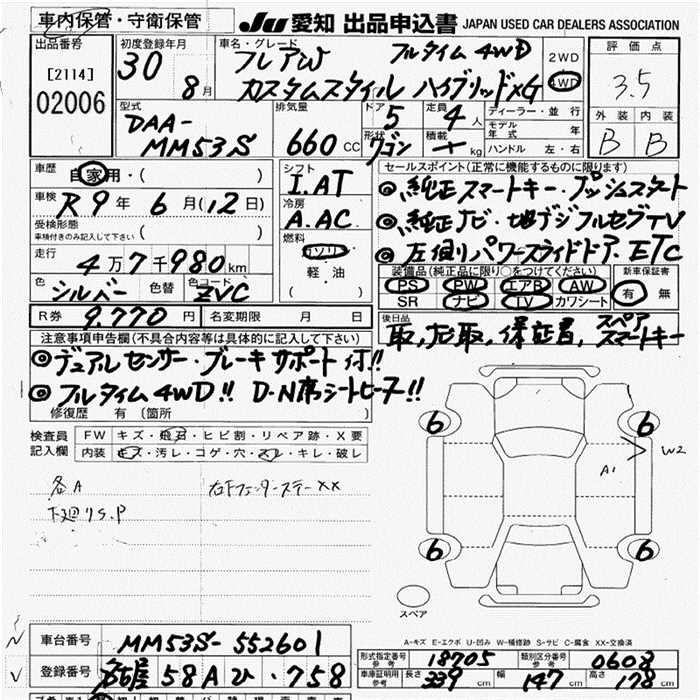 車内保管・守衛保管 JU 愛知 出品申込書 JAPAN USED CAR DEALERS ASSOCIATION
出品番号 [2114] 02006
初度登録年月 30 8月
車名・グレード フレアW フルタイム4WD
カスタムスタイル ハイブリッドXG
2WD 4WD
評価点 3.5
外装 内装
B B
型式 DAA-MM53S
排気量 660 CC
ドア 5 定員 4人
形状 ワゴン 積載 kg
ディーラー・並行
モデル年式 年
ハンドル 左・右
車歴 自家用・( )
車検 R9年6月(12日)
受検形態 車検付きのみ記入して下さい ( )
走行 4万7千980km
色 シルバー 色替 色コード ZVC
シフト I.AT
冷房 A.AC
燃料 ガソリン
軽・油
( )
セールスポイント(正常に機能するものに限ります)
◎純正スマートキー・プッシュスタート
◎純正ナビ・地デジフルセグTV
◎左側パワースライドドア.ETC
装備品(純正品に限り○をつけてください) 新車保証書
PS PW エアB AW 有 無
SR ナビ TV カワシート
R券 9.770円 名変期限 月 日
後日品 取,ナビ取,保証書,スペアスマートキー
注意事項申告欄(不具合内容等は具体的に記入して下さい)
◎デュアルセンサー・ブレーキサポート付!!
◎フルタイム4WD!! D・N席シートヒーター!!
修復歴 有 (箇所 )
検査員記入欄 FW キズ・飛石・ヒビ割・リペア跡・X要
内装 キズ・汚レ・コゲ・穴・スレ・キレ・破レ
各A 右下フェンダーステーXX
下廻りS.P
6 6
6 6
A1 W2
スペア
A-キズ E-エクボ U-凹み W-補修跡 S-サビ C-腐食 XX-交換済
車台番号 MM53S-552601
登録番号 名古屋 58A ひ・758
型式指定番号 参考 18705 類別区分番号 参考 0608
車庫証明用 参考 長さ 339cm 幅 147cm 高さ 178cm